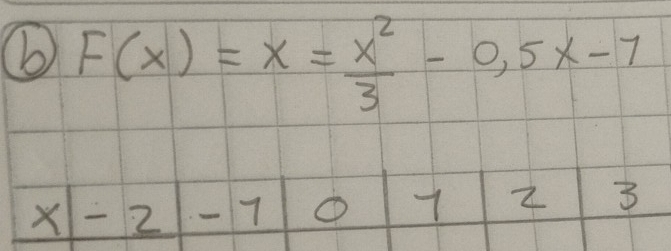 b) F(x) = x = x²/3 - 0,5x - 1
x | -2 | -1 | 0 | 1 | 2 | 3